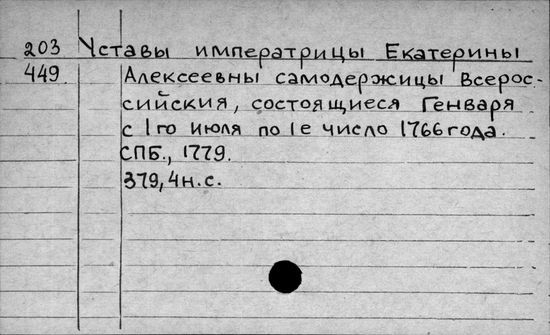 203 Уставы императрицы Екатерины
449 Алексеевны самодержицы Всерос-
сийския, состоящиеся Генваря
с 1го июля по 1е число 1766 года.
СПБ., 1779.
379, 4 н. с.